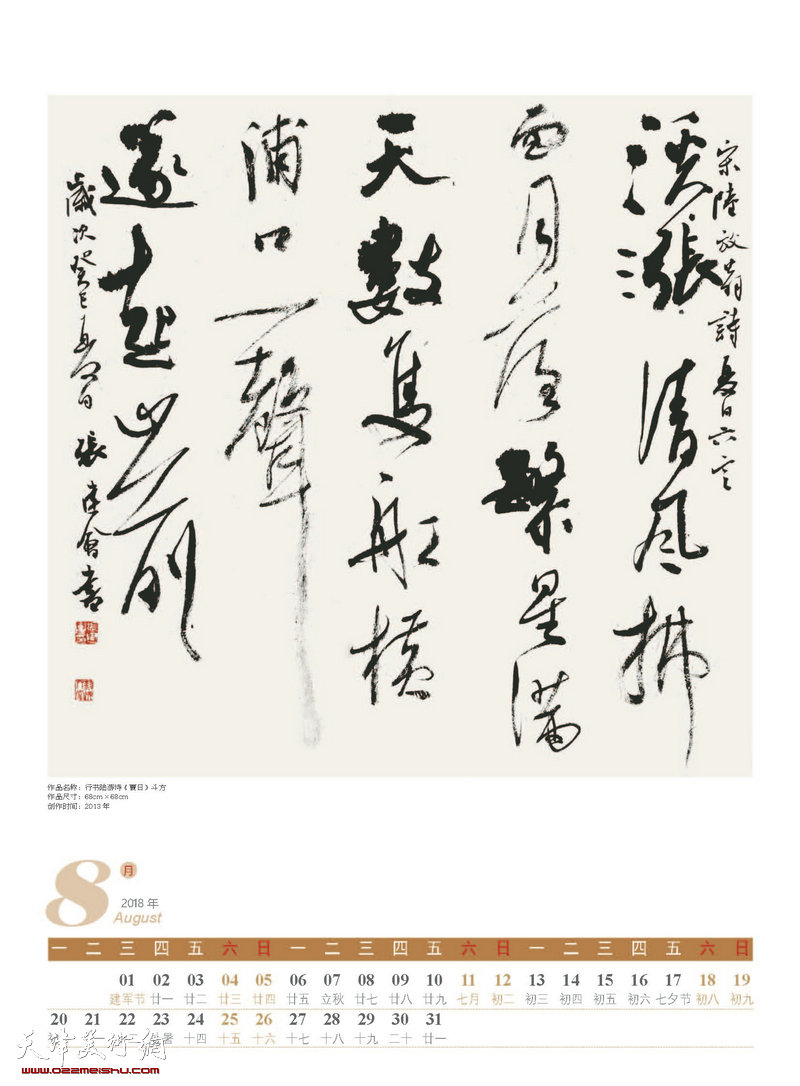 宋陸放翁詩夏日六言
溪漲清風拂
面月落繁星滿
天數隻船橫
浦口一聲
篴起山前
歲次癸巳夏日 張建會書
作品名称：行书陆游诗《夏日》斗方
作品尺寸：68cm×68cm
创作时间：2013年
8 月
2018 年
August
一 二 三 四 五 六 日 一 二 三 四 五 六 日 一 二 三 四 五 六 日
01 02 03 04 05 06 07 08 09 10 11 12 13 14 15 16 17 18 19
建军节 廿一 廿二 廿三 廿四 廿五 立秋 廿七 廿八 廿九 七月 初二 初三 初四 初五 初六 七夕节 初八 初九
20 21 22 23 24 25 26 27 28 29 30 31
暑 十四 十五 十六 十七 十八 十九 二十 廿一
天津美術網
www.022meishu.com